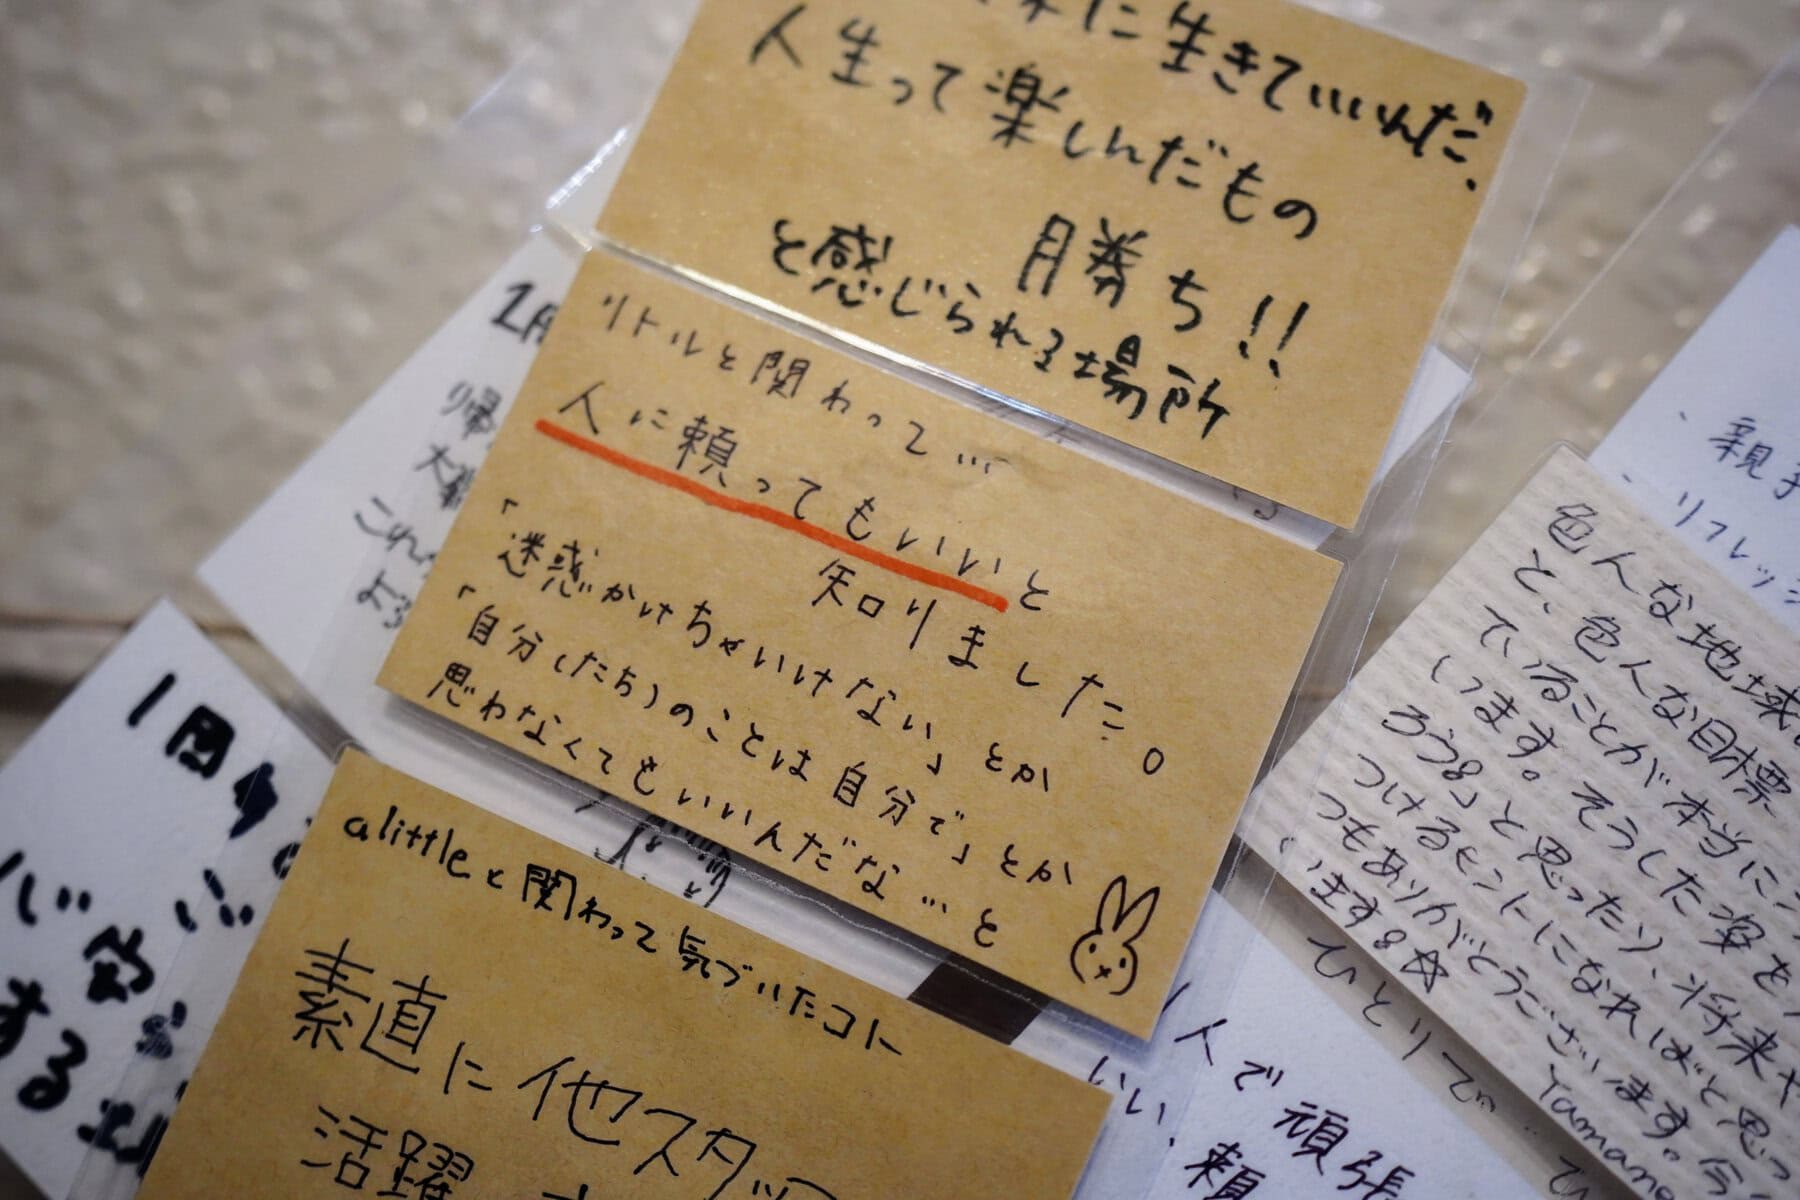 に生きていいんだ、
人生って楽しんだもの
勝ち!!
と感じられる場所
リトルと関わって…
人に頼ってもいいと
知りました。
「迷惑かけちゃいけない」とか
「自分(たち)のことは自分で」とか
思わなくてもいいんだな…と
alittleと関わって気づいたコト
素直に他スタッ
活躍
1回
する
大
これ
親
・リフレッシ
色んな地域
と、色んな目標
ていることが本当に
います。そうした姿を
ろう」と思ったり、将来や
つけるヒントになればと思っ
つもありがとうございます。今
います☆
Yamamo
ひとりで
人で頑張
いい、
頼